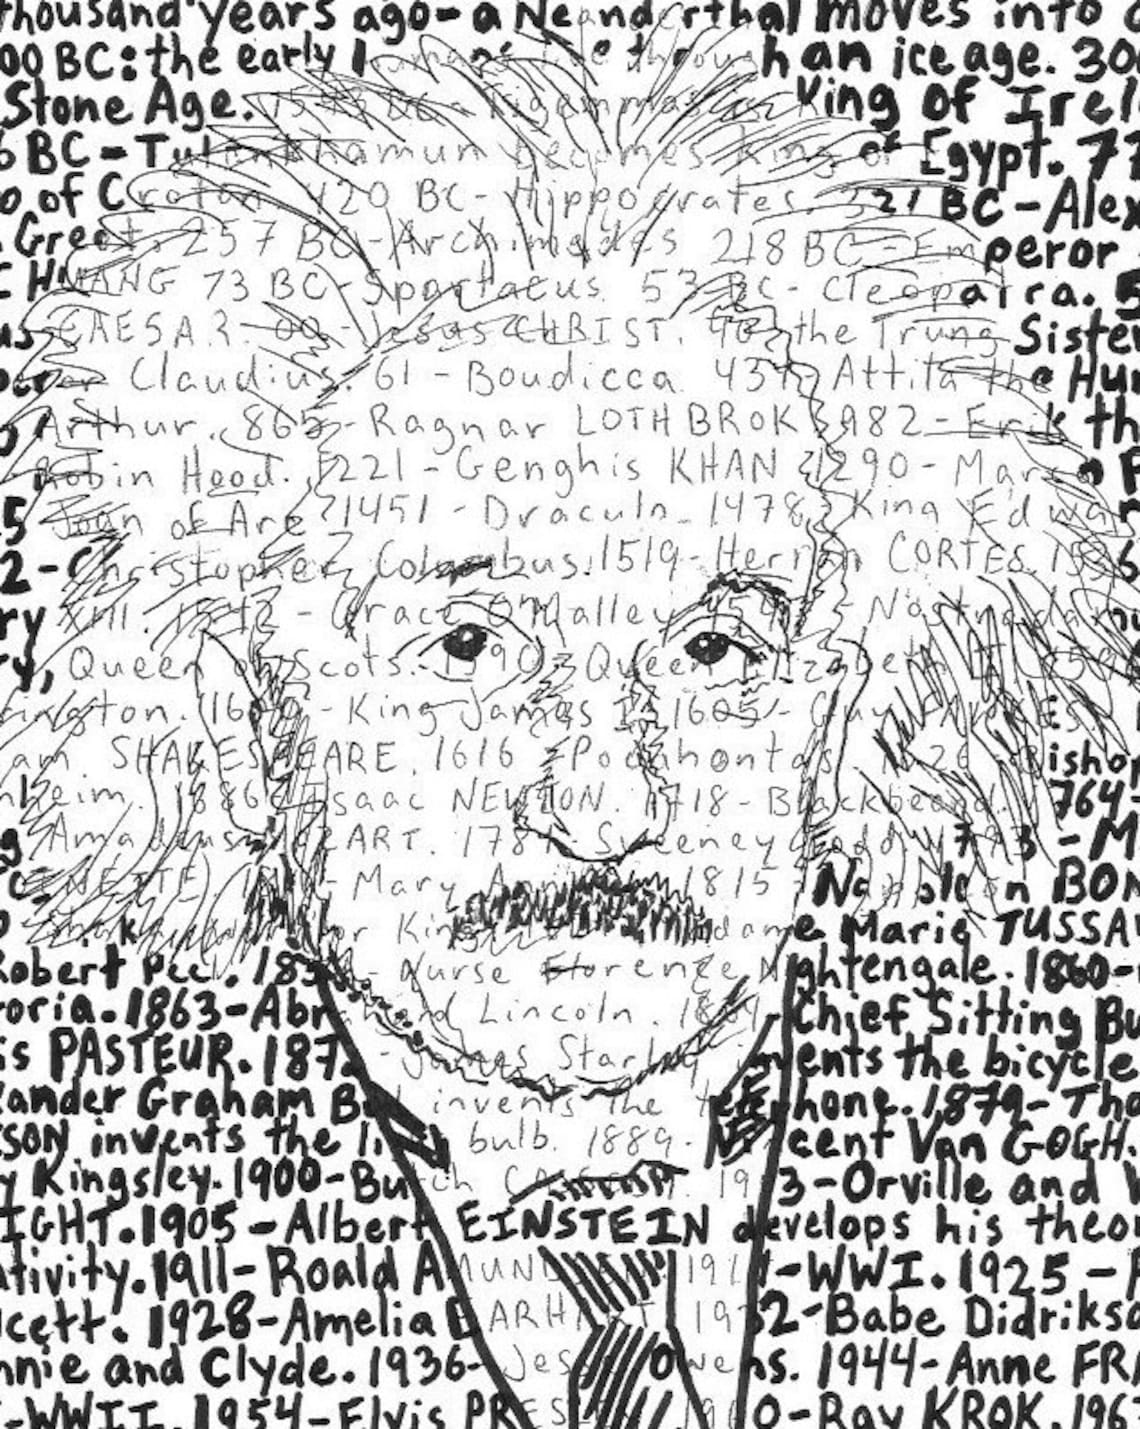 thousand years ago- a Neanderthal moves into
00 BC: the early humans live through an ice age. 30
Stone Age. King of Irel
6 BC- Tutankhamun becomes King of Egypt. 77
o of Croton. 420 BC- Hippocrates. 321 BC- Alex
Great. 257 BC- Archimedes 218 BC- Emperor
HWANG 73 BC- Spartacus. 53 BC- Cleopatra. 5
us CAESAR. 00- Jesus CHRIST. 40- the Trung Sister
Claudius. 61- Boudicca. 434- Attila the Hun
Arthur. 865- Ragnar LOTHBROK. 982- Erik th
Robin Hood. 1221- Genghis KHAN 1290- Marco P
5 Joan of Arc 1451- Dracula. 1478- King Edwa
2- Christopher Columbus. 1519- Hernan CORTES. 15 6
ry XIII. Grace O'Malley Nostradamu
ry, Queen of Scots. 1590- Queen Elizabeth II
rington. 16 - King James I. 1605- Guy FAWKES
am SHAKESPEARE. 1616- Pocahontas. 1 26 Bishop
nheim. 1686- Isaac NEWTON. 1718- Blackbeard. 1764-
g Amadeus MOZART. 178 Sweeney Todd 1793 - M
NETTE. Mary Ann 1815 Napoleon BON
or King Madame Marie TUSSA
Robert Peel. 185 - Nurse Florence Nightengale. 1860-
toria. 1863- Abraham Lincoln. 186 Chief Sitting Bu
is PASTEUR. 187 - James Starley invents the bicycle
xander Graham Bell invents the telephone. 1,879- Tho
SON invents the light bulb. 1889- Vincent Van GOGH.
y Kingsley. 1900- Butch CASSIDY. 1903- Orville and W
IGHT. 1905- Albert EINSTEIN develops his theo
ativity. 1911- Roald AMUNDSEN. 191 -WWI. 1925 -
cett. 1928- Amelia EARHART 1932- Babe Didrikso
nnie and Clyde. 1936- Jesse Owens. 1944- Anne FRA
-WWII. 1954- Elvis PRESLEY. 1960- Ray KROK. 196